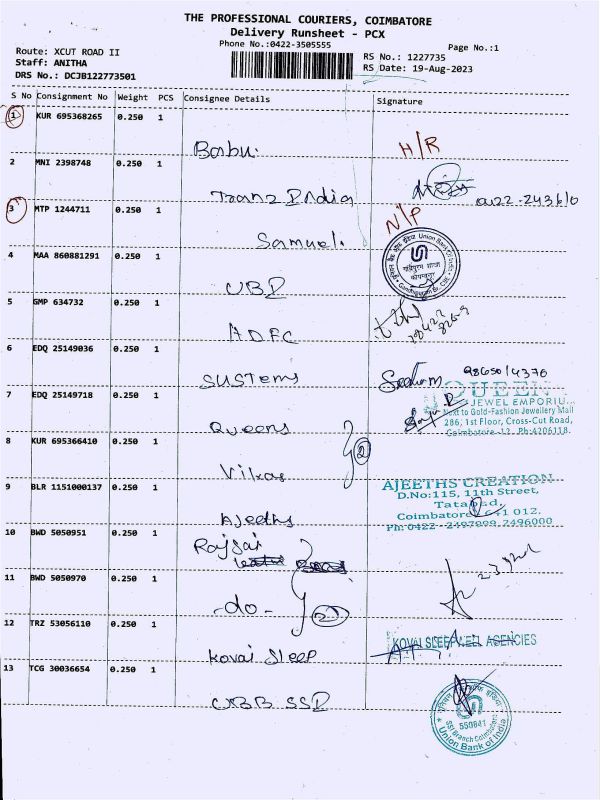 THE PROFESSIONAL COURIERS, COIMBATORE
Delivery Runsheet - PCX
Phone No.:0422-3505555
Page No.:1
Route: XCUT ROAD II
Staff: ANITHA
DRS No.: DCJB122773501
RS No.: 1227735
RS Date: 19-Aug-2023
S No Consignment No Weight PCS Consignee Details Signature
1 KUR 695368265 0.250 1
Babu. H/R
2 MNI 2398748 0.250 1
Tranz India
3 MTP 1244711 0.250 1 N/P
Samuel.
4 MAA 860881291 0.250 1
Union Bank of India
UBI
5 GMP 634732 0.250 1
HDFC
6 EDQ 25149036 0.250 1
Systems
98650/4376
7 EDQ 25149718 0.250 1
QUEEN
JEWEL EMPORIU...
Next to Gold-Fashion Jewellery Mall
286, 1st Floor, Cross-Cut Road,
Coimbatore-12. Ph:4206118.
Queens
8 KUR 695366410 0.250 1
2
Vikas
9 BLR 1151000137 0.250 1
AJEETHS CREATION
D.No:115, 11th Street,
Tatabad,
Coimbatore - 641 012.
Ph: 0422 - 2497999, 2496000
Ajeeths
10 BWD 5050951 0.250 1
Rajsai
11 BWD 5050970 0.250 1
-do- 2
12 TRZ 53056110 0.250 1
KOVAI SLEEPWELL AGENCIES
Kovai Sleep
13 TCG 30036654 0.250 1
550841
SSI Branch Coimbatore
Union Bank of India
UBB SSI